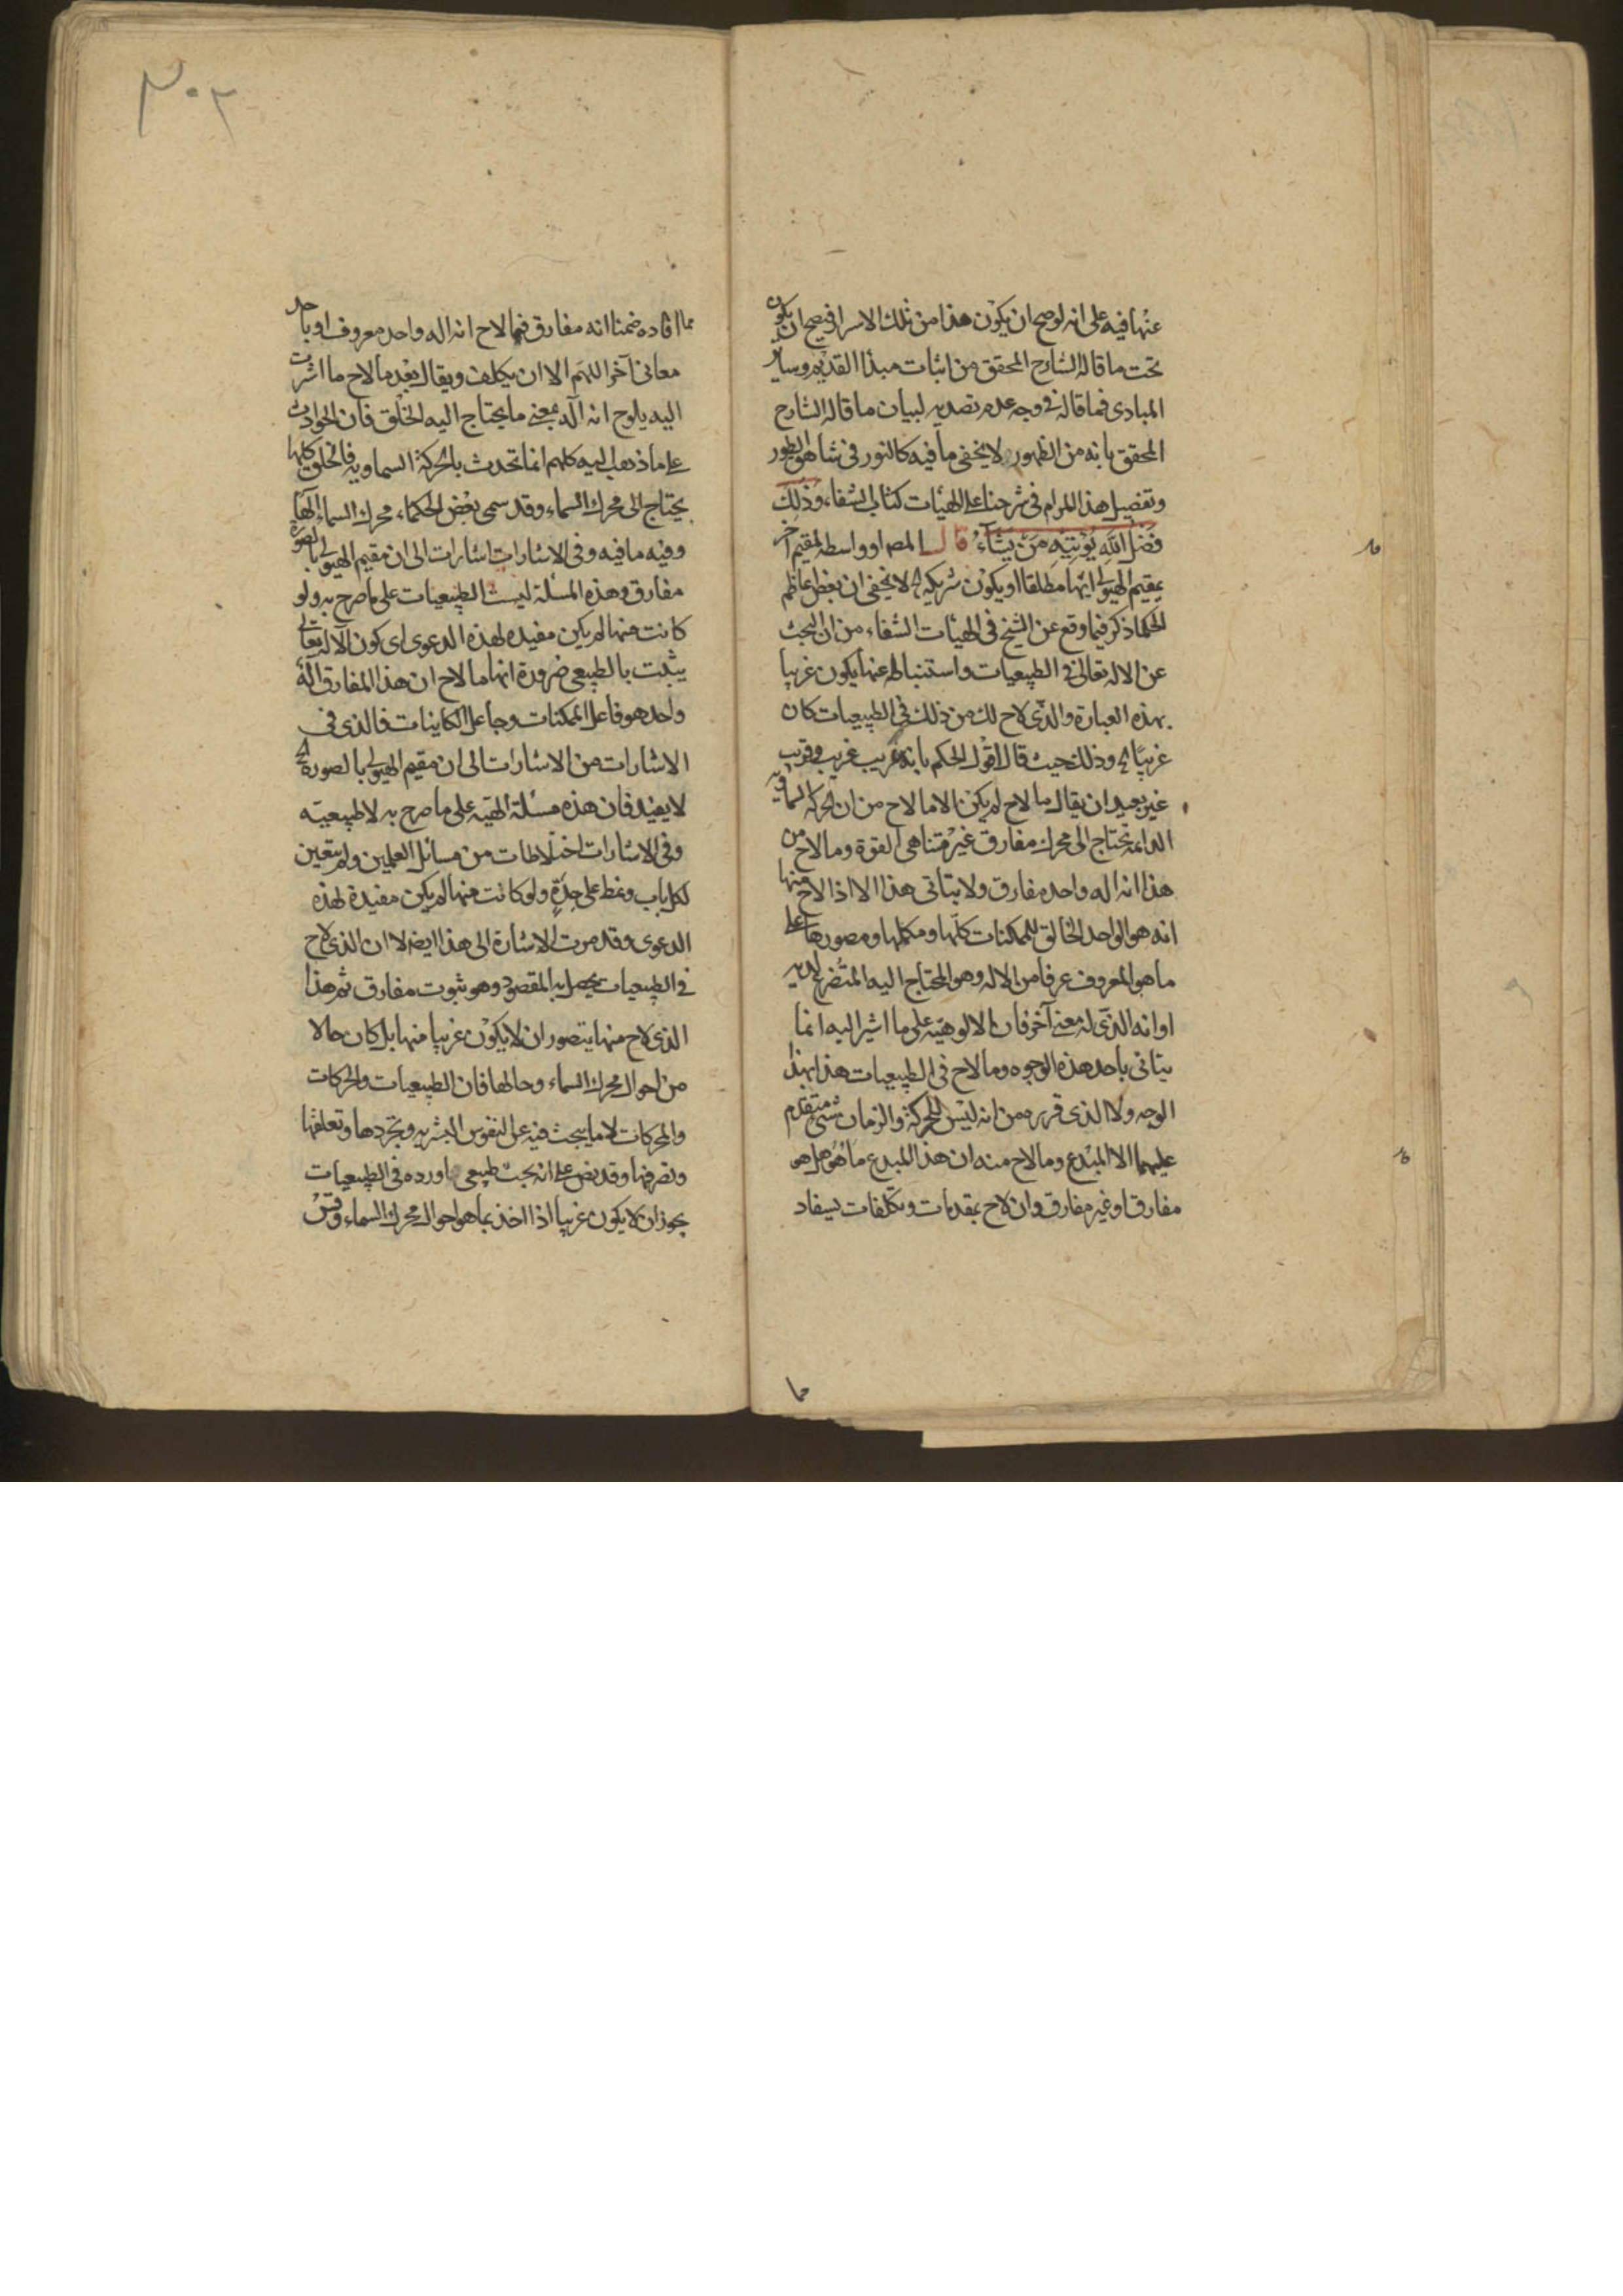 عنها فيه على انه لو صح ان يكون هذا من تلك الاسرار فيصح ان يكون
تحت ما قاله الشارح المحقق من اثبات مبدأ القديم وساير
المبادى فما قاله فى وجه عدم تصديه لبيان ما قاله الشارح
المحقق بانه من الظهور لا يخفى ما فيه كالنور فى شاهق الطور
وتفصيل هذا المرام فى شرحنا على الهيات كتاب الشفاء وذلك
فضل الله يؤتيه من يشاء قال المصـ او واسطة لمقيم آخر
يقيم الهيولى ايهما مطلقا او يكون شريكه الخ لا يخفى ان بعض اعاظم
الحكما ذكر فيما وقع عن الشيخ فى الهيات الشفاء من ان البحث
عن الاله تعالى فى الطبيعيات واستنباطه عنها يكون غريبا
بهذه العبارة والذى لاح لك من ذلك فى الطبيعيات كان
غريبا الخ وذلك حيث قال اقول الحكم بانه غريب غريب وقريب
غير بعيد ان يقال ما لاح لم يكن الا ما لاح من ان الحركة السماوية
الدائمة تحتاج الى محرك مفارق غير متناهى القوة وما لاح من
هذا انه اله واحد مفارق ولا يتاتى هذا الا اذا لاح منها
انه هو الواحد الخالق للممكنات كلها ومكملها ومصورها على
ما هو المعروف عرفا من الاله وهو المحتاج اليه المتضرع لديه
او انه الذى له معنى آخر فان الالوهية على ما اشير اليه انما
يتاتى باحد هذه الوجوه وما لاح فى الطبيعيات هذا بهذا
الوجه ولا الذى قرره من انه ليس للحركة والزمان شئ متقدم
عليهما الا المبدع وما لاح منه ان هذا المبدع ما هو هل هو
مفارق او غير مفارق وان لاح بمقدمات وتكلفات يستفاد
٣٠٢
مما افاده ضمنا انه مفارق فما لاح انه اله واحد معروف او باحد
معانى آخر اللهم الا ان يكلف ويقال بعد ما لاح ما اشرت
اليه يلوح انه آله بمعنى ما يحتاج اليه الخلق فان الحوادث
على ما ذهب اليه كلهم انما تحدث بالحركة السماوية فالخلق كلها
يحتاج الى محرك السماء وقد سمى بعض الحكماء محرك السماء الها
وفيه ما فيه وفى الاشارات اشارات الى ان مقيم الهيولى بالصورة
مفارق وهذه المسئلة ليست الطبيعيات على ما صرح به ولو
كانت منها لم يكن مفيده لهذه الدعوى اى كون الاله تعالى
يثبت بالطبيعى ضرورة انها ما لاح ان هذا المفارق اله
واحد هو فاعل الممكنات وجاعل الكاينات فالذى فى
الاشارات من الاشارات الى ان مقيم الهيولى بالصورة الخ
لا يفيد فان هذه مسئلة الهية على ما صرح به لا طبيعية
وفى الاشارات اختلاطات من مسائل العلمين ولم يتعين
لكل باب ونمط على حدة ولو كانت منها لم يكن مفيدة لهذه
الدعوى وقد مرت الاشارة الى هذا ايضا الا ان الذى لاح
فى الطبيعيات يحصل به المقصود وهو ثبوت مفارق ثم هذا
الذى لاح منها يتصور ان لا يكون غريبا منها بل كان حالا
من احوال محرك السماء وحالها فان الطبيعيات والحركات
والمحركات لا ما يبحث فيه عن النفوس البشرية وتجردها وتعلقها
وتصرفها وقد نص على انه بحث طبيعى اورده فى الطبيعيات
يجوز ان لا يكون غريبا اذا اخذ بما هو احوال محرك السماء وقس